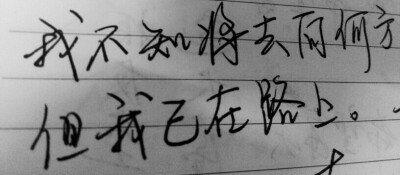 我不知将去向何方
但我已在路上。